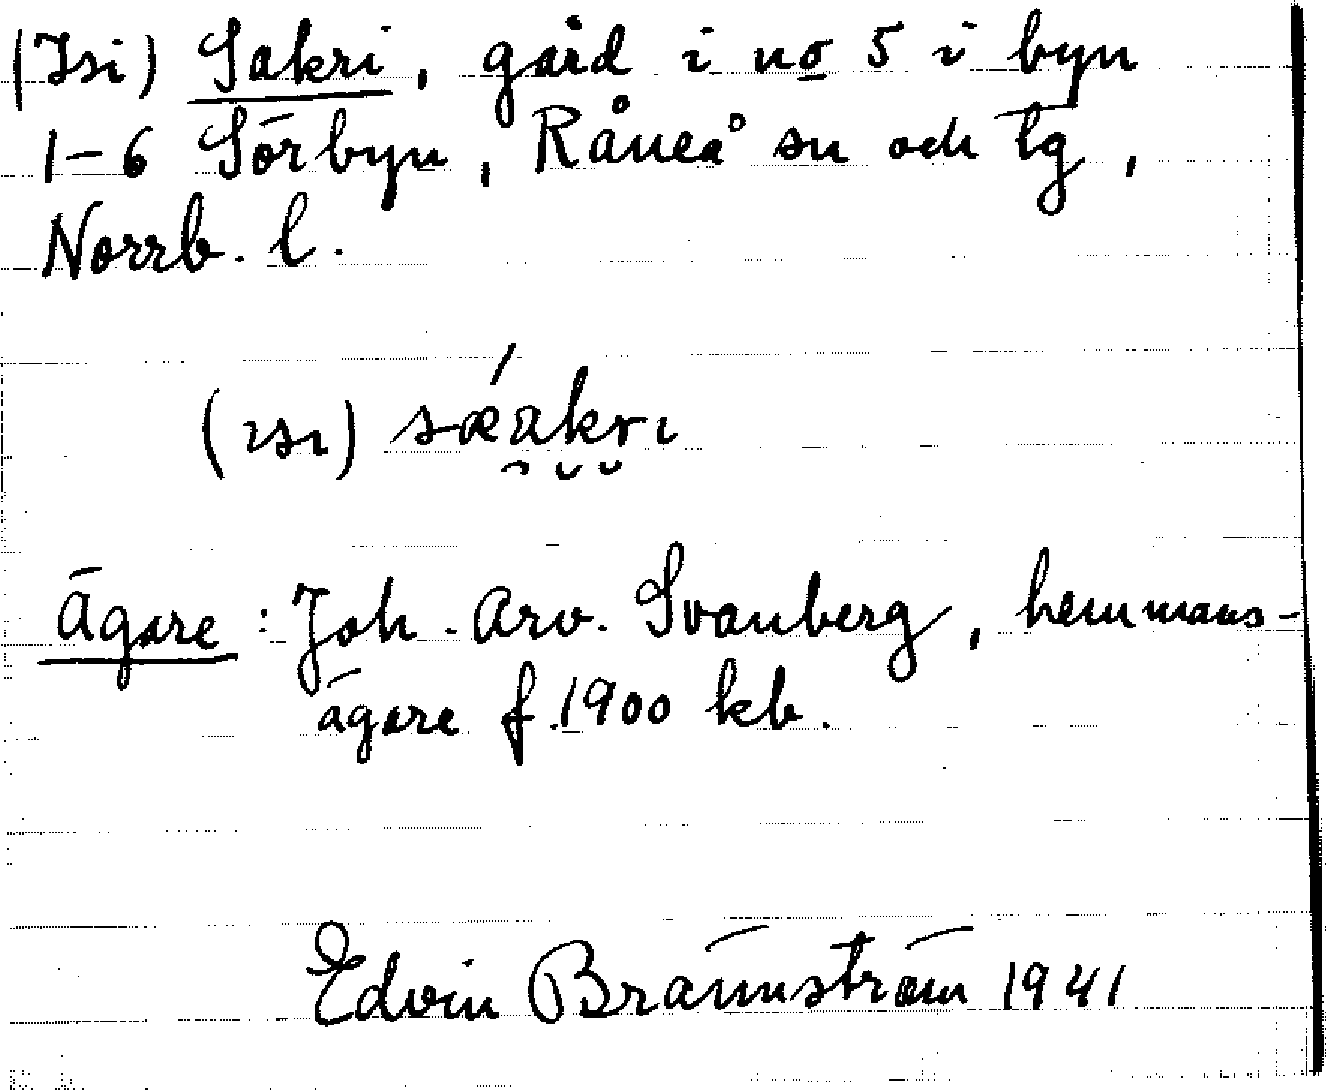 (Isi) Sakri, gård i no 5 i byn
1-6 Sörbyn, Råneå sn och tg,
Norrb. l.
(ısı) sǽakrı
Ägare: Joh. Arv. Svanberg, hemmans-
ägare f. 1900 kb.
Edvin Brännström 1941